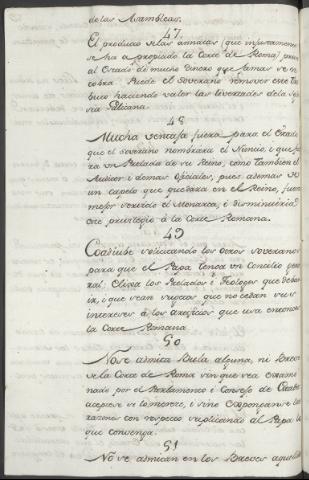 de las Asambleas.
47.
El producto de las annatas (que injustamente
se ha apropiado la Corte de Roma) priva
al Estado de mucho dinero que jamas se re
cobra. Puede el soverano remover este Tri
buto haciendo valer las livertades de la
Galicana.
48
Mucha ventaja fuera para el Estado
que el soverano nombrara el Nuncio, i que fue
ra un Prelado de su Reino, como tambien el
Auditor i demas oficiales, pues ademas de
un capelo que quedara en el Reino, fuera
mejor servido el Monarca, i disminuiria
este privilegio à la Corte Romana.
49
solicitando los otros soveranos
para que el Papa tenga un Concilio gene
ral: Elixa los Prelados i Teologos que deban
ir, i que sean sugetos que no cedan sus
intereses à los artificios que usa entonces
la Corte Romana
50
No se admita Bula alguna, ni Breve
de la Corte de Roma sin que sea exami
nado por el Parlamento i Consejo de Estado
acepte si lo merece, i sino expongan se las
razones con respeto suplicando al Papa lo
que convenga.
51
No se admitan en los Breves